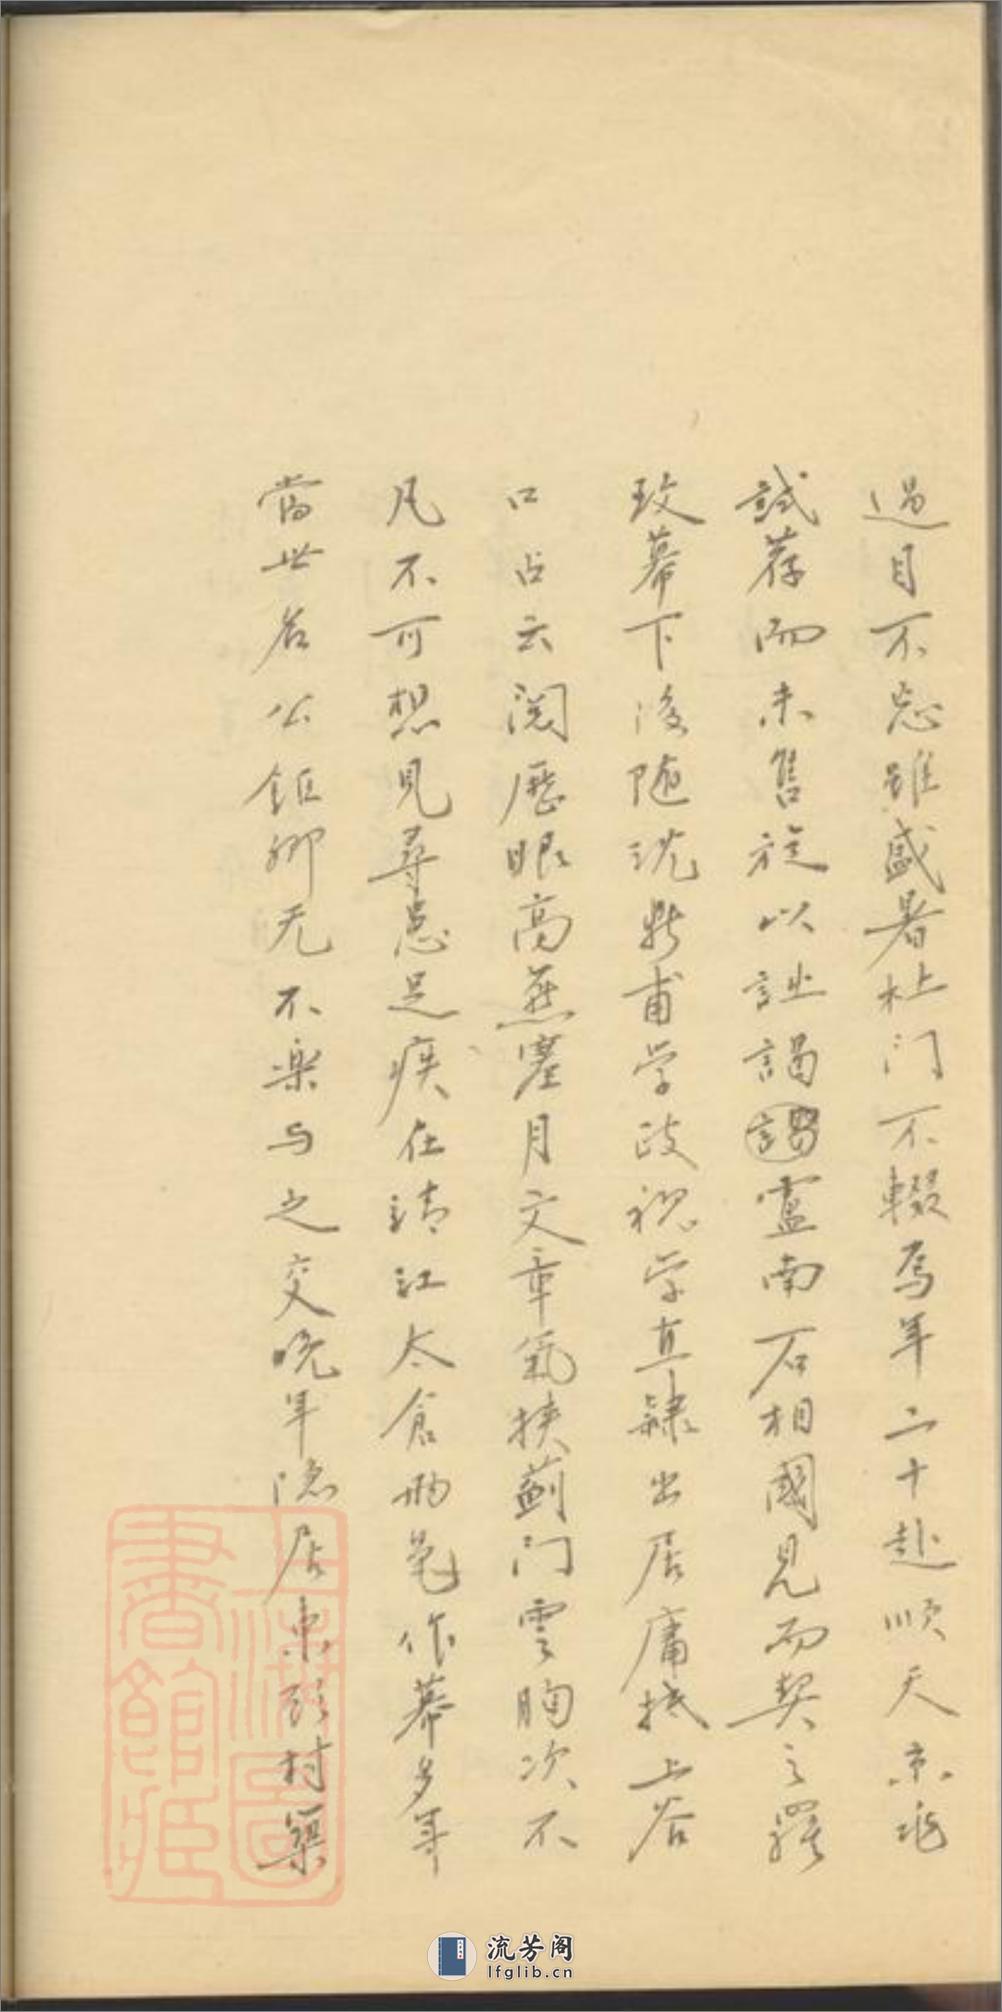 過目不忘雖盛暑杜门不輟焉年二十赴順天京兆
試荐而未售旋以詿謁盧南石相國見而契之羅
致幕下後随沈鼎甫学政視学直隸出居庸抵上谷
口占云闊歷眼高燕塞月文章氣挾薊门雲胸次不
凡不可想見尋患足疾在清江太倉两邑作幕多年
當世名公鉅卿无不樂与之交晚年隐居東村築
上海圖書館藏
流芳阁
lfglib.cn